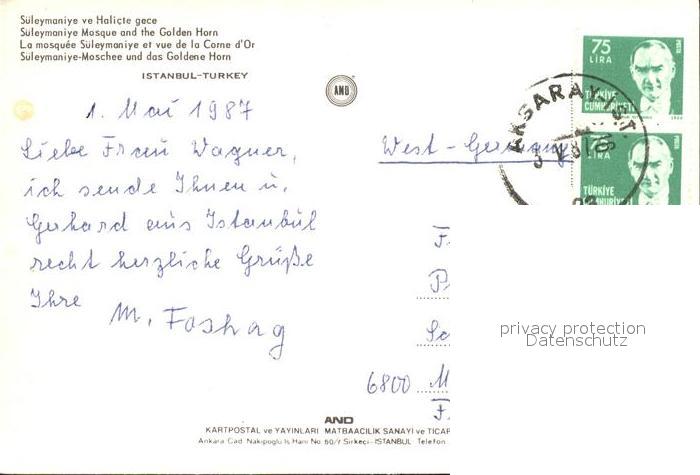 Süleymaniye ve Haliçte gece
Süleymaniye Mosque and the Golden Horn
La mosquée Süleymaniye et vue de la Corne d'Or
Süleymaniye-Moschee und das Goldene Horn
ISTANBUL-TURKEY
AND
1. Mai 1987
Liebe Frau Wagner,
ich sende Ihnen u.
Gerhard aus Istanbul
recht herzliche Grüße
Ihre
M. Foshag
75
LIRA
POSTA
TÜRKİYE
CUMHURİYETİ
AKSARAY
West-Germany
LIRA
TÜRKİYE
F.
P
Sc
6800 M
F.
privacy protection
Datenschutz
AND
KARTPOSTAL ve YAYINLARI MATBAACILIK SANAYİ ve TİCAR
Ankara Cad. Nakipoğlu İş Hanı No. 50/7 Sirkeci-İSTANBUL Telefon